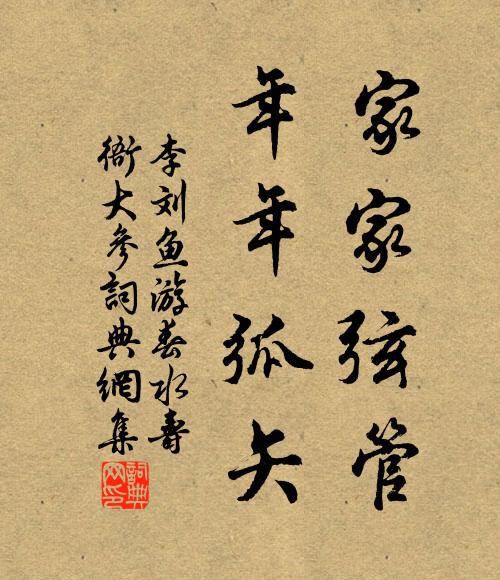 家家弦管
年年弧矢
李刘鱼游春水寿
衙大参詞典網集
詞典网印